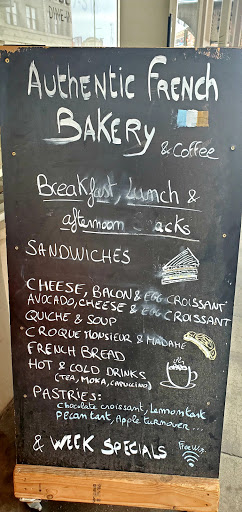 Authentic French
Bakery
& Coffee
Breakfast, Lunch &
afternoon acks
Sandwiches
Cheese, Bacon & Egg Croissant
Avocado, Cheese & Egg Croissant
Quiche & Soup
Croque Monsieur & Madame
French Bread
Hot & Cold Drinks
(Tea, Moka, Capuccino)
Pastries:
Chocolate croissant, Lemon tart
Pecan tart, Apple turnover...
& Week Specials
Free Wifi